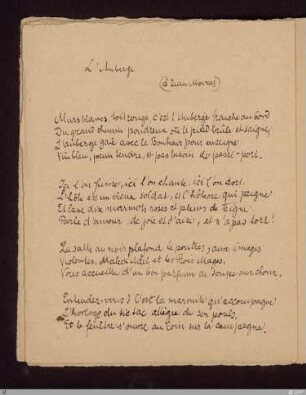 L'Auberge
(à Jean Moréas)
Murs blancs, toit rouge, c'est l'Auberge fraîche au bord
Du grand chemin poudreux où le pied brûle et saigne,
L'auberge gaie avec le Bonheur pour enseigne
Vin bleu, pain tendre, et pas besoin de passe-port.
Ici l'on fume, ici l'on chante, ici l'on dort.
L'hôte est un vieux soldat, et l'hôtesse qui peigne
Et lave dix marmots roses et pleins de teigne
Parle d'amour, de joie et d'aise, et n'a pas tort!
La salle au noir plafond de poutres, aux images
Violentes, Maleck Adel et les Rois Mages,
Vous accueille d'un bon parfum de soupe aux choux.
Entendez-vous? C'est la marmite qu'accompagne
L'horloge du tic tac allègre de son pouls.
Et la fenêtre s'ouvre au loin sur la campagne.